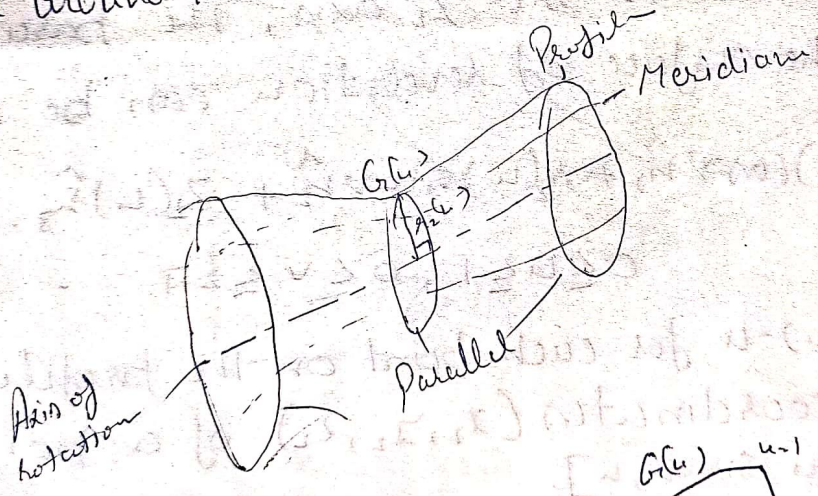 Profile
Meridian
G(u)
r2(u)
Parallel
Axis of
rotation
G(u) u=1